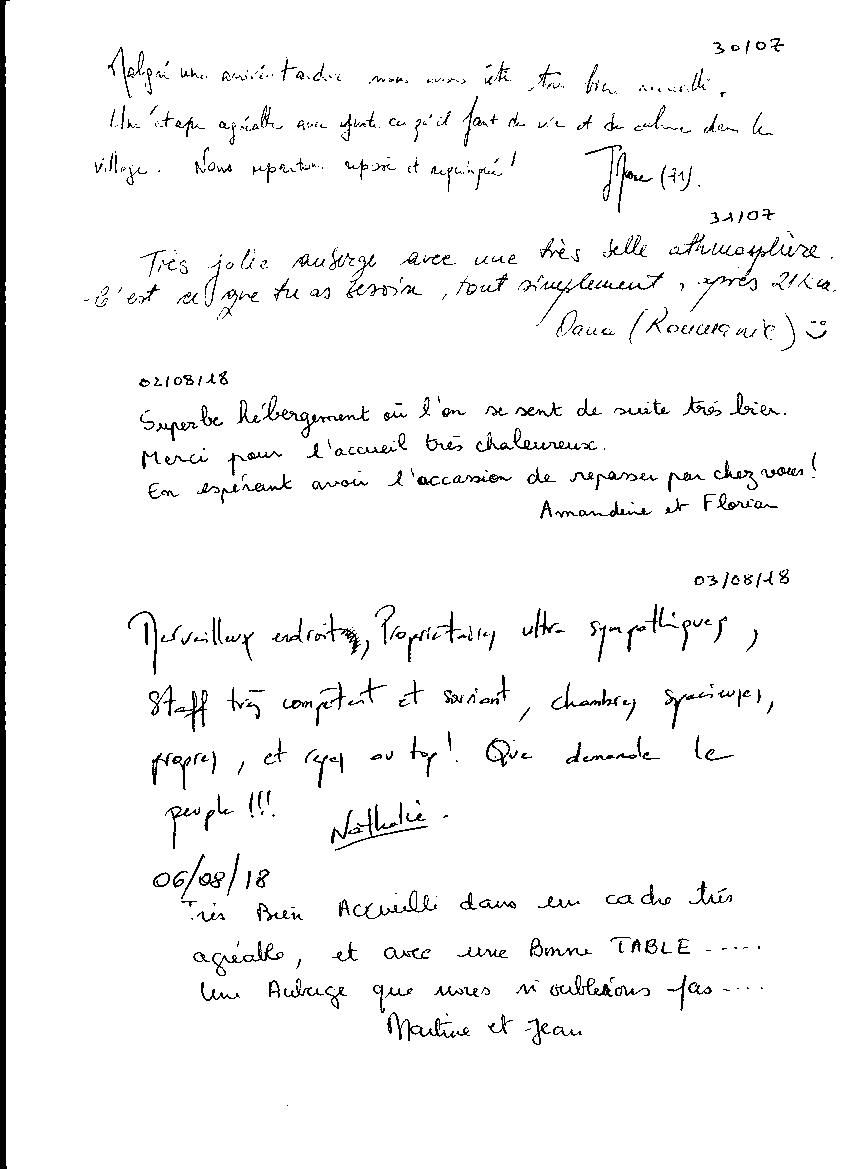 30/07
Malgré une arrivée tardive nous avons été très bien accueilli.
Une étape agréable avec juste ce qu'il faut de vie et de calme dans le
village. Nous repartons reposé et requinqué !
(71).
31/07
Très jolie auberge avec une très belle athmosphère.
C'est ce que tu as besoin, tout simplement, après 21km.
Dana (Roumanie) ☺
02/08/18
Superbe hébergement où l'on se sent de suite très bien.
Merci pour l'accueil très chaleureux.
En espérant avoir l'accassion de repasser par chez vous !
Amandine et Florian
03/08/18
Merveilleux endroit, Propriétaires ultra sympathiques,
Staff très compétent et souriant, chambres spacieuses,
propres, et repas au top ! Que demande le
peuple !!!
Nathalie.
06/08/18
Très Bien Accueilli dans un cadre très
agréable, et avec une Bonne TABLE .....
Une Auberge que nous n'oublierons pas ....
Martine et Jean